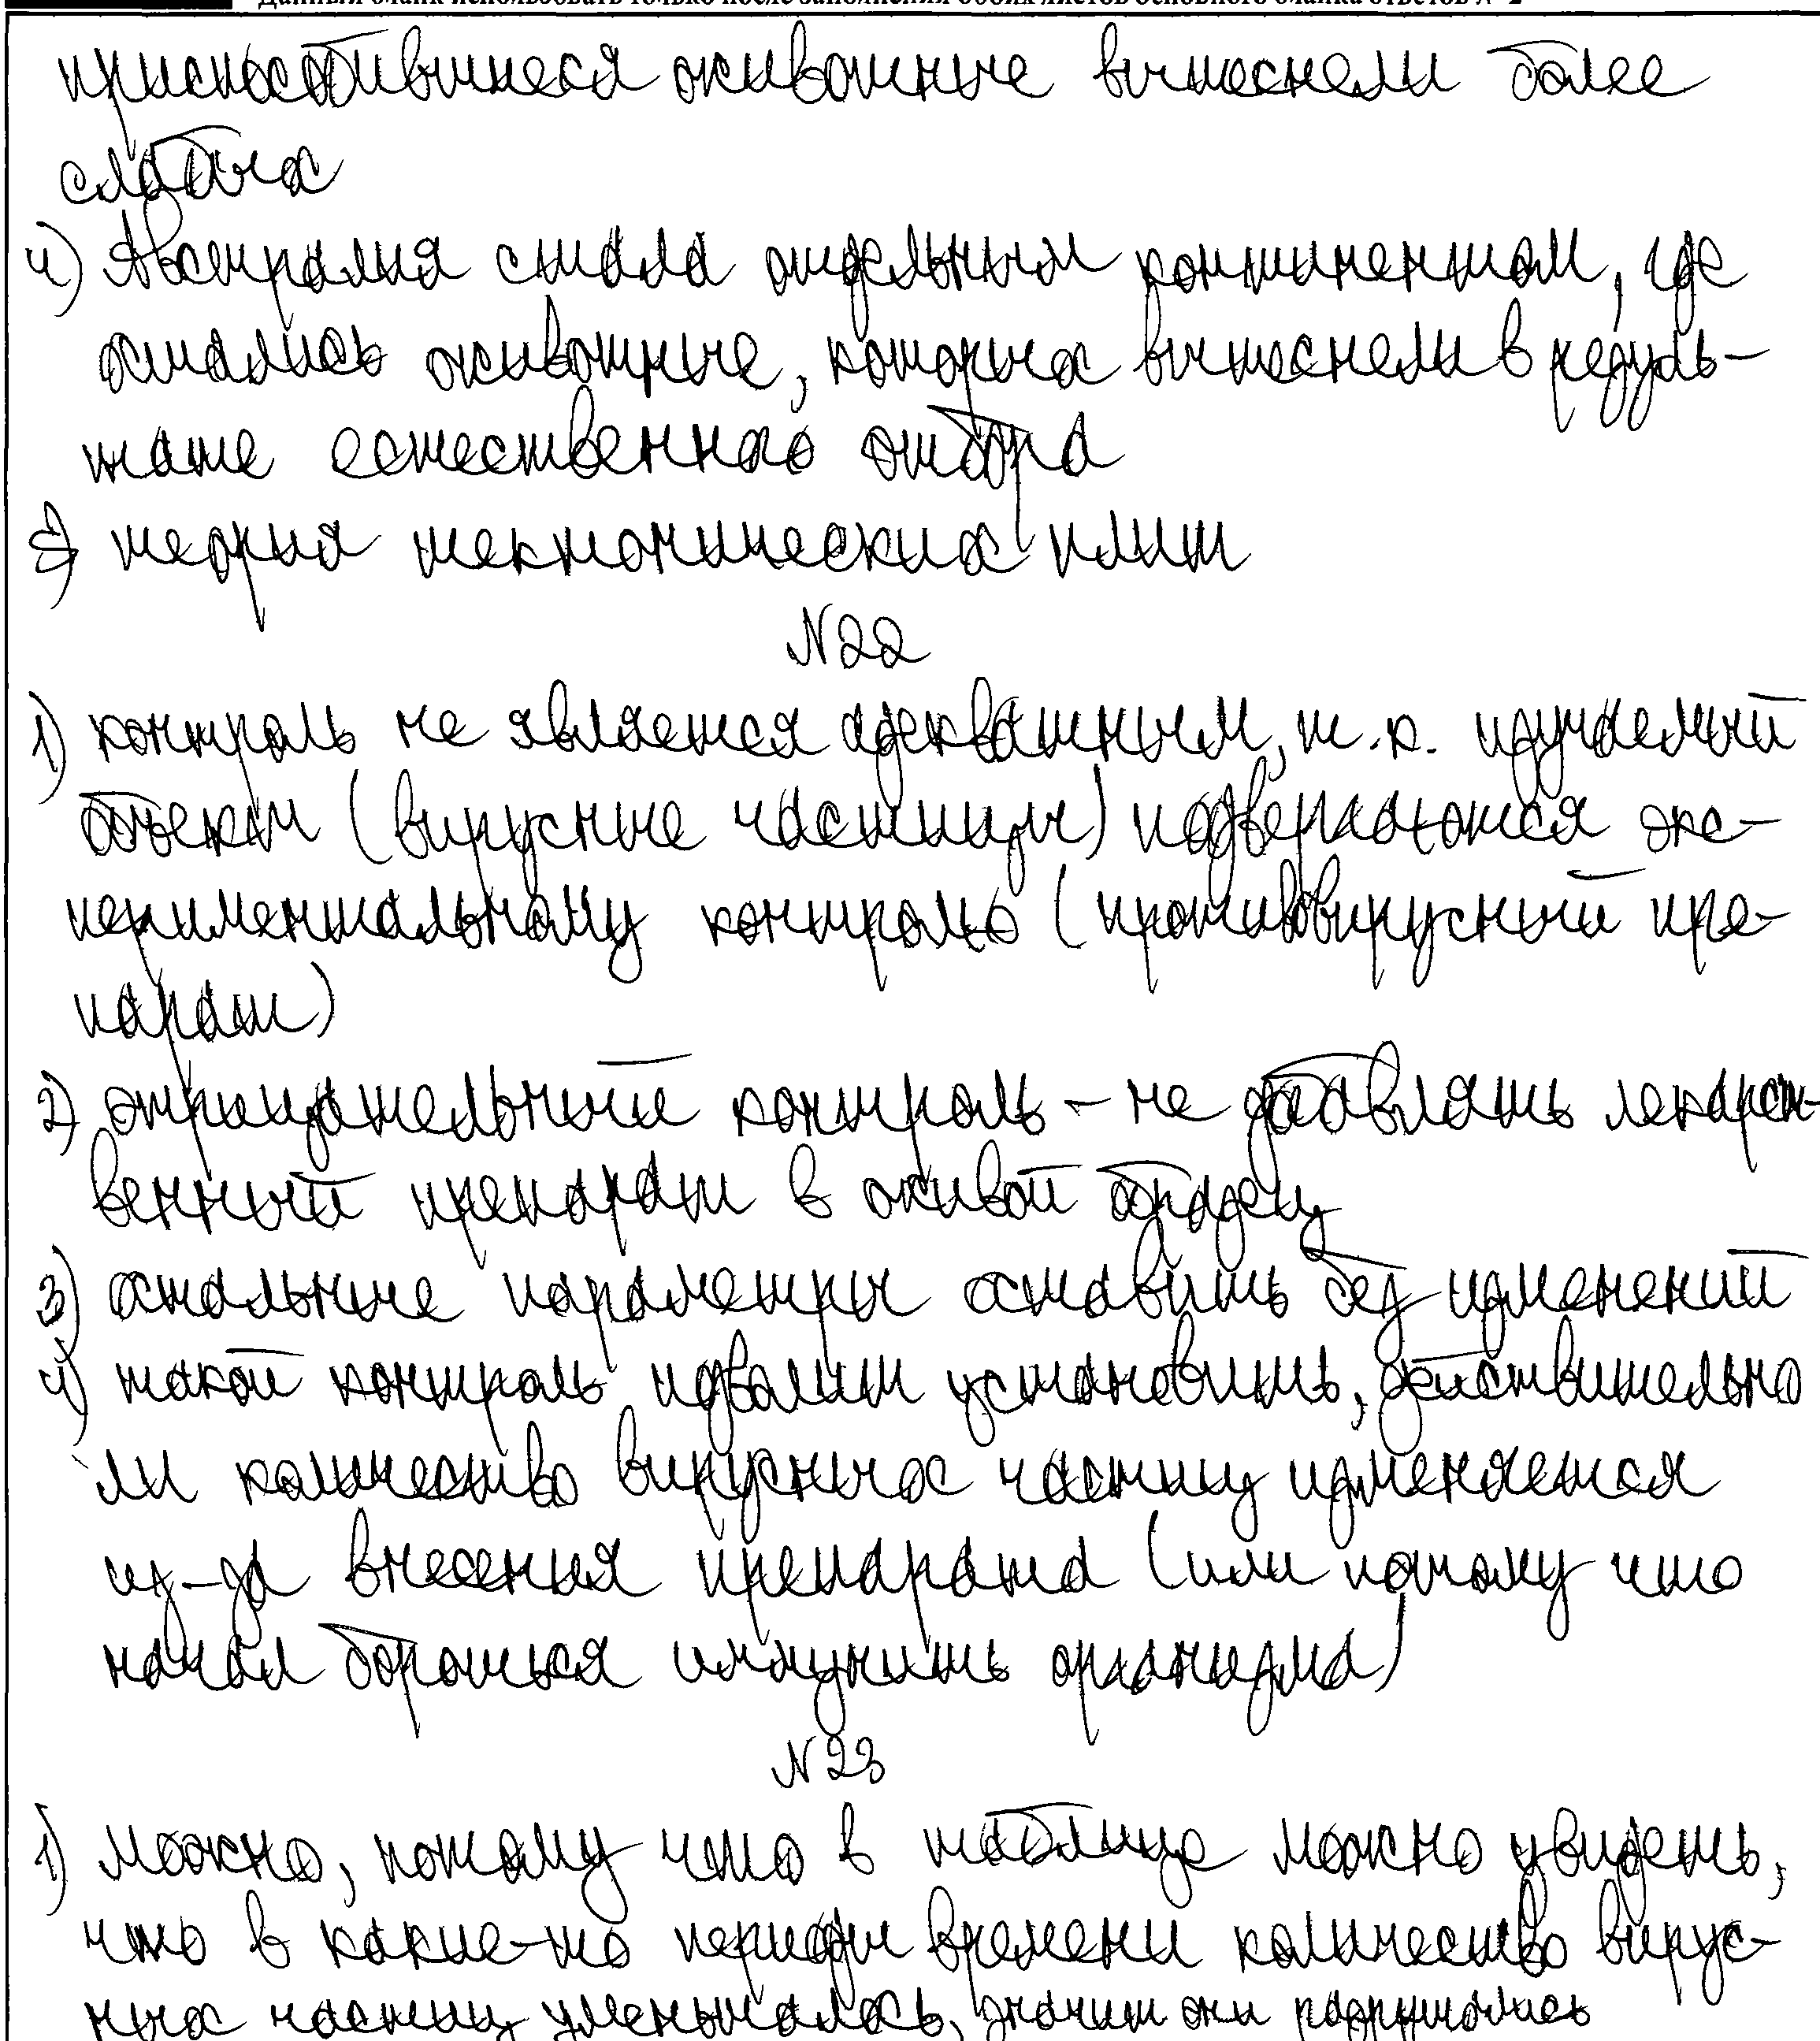 Данный бланк использовать только после заполнения обоих листов основного бланка ответов № 2
приспособившиеся животные вытеснели более
слабых
4) Австралия стала отдельным континентом, где
остались животные, которых вытеснели в резуль-
тате естественного отбора
5) теория тектонических плит
№22
1) контроль не является адекватным, т.к. изучаемый
объект (вирусные частицы) подвергаются экс-
периментальному контролю (противовирусный пре-
парат)
2) отрицательный контроль - не добавлять лекарст-
венный препарат в живой образец
3) остальные параметры оставить без изменений
4) такой контроль позволит установить, действительно
ли количество вирусных частиц изменяется
из-за внесения препарата (или потому что
начал бороться иммунить организма)
№23
1) можно, потому что в таблице можно увидеть,
что в какие-то периоды времени количество вирус-
ных частиц уменьшалось, значит они разрушались